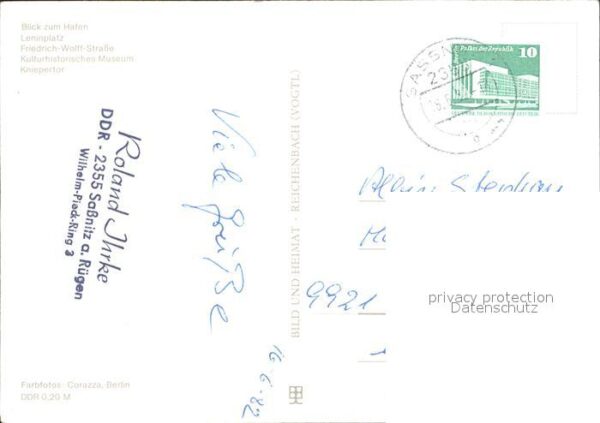 Blick zum Hafen
Leninplatz
Friedrich-Wolf-Straße
Kulturhistorisches Museum
Kniepertor
Roland Ihrke
DDR - 2355 Saßnitz a. Rügen
Wilhelm-Pieck-Ring 3
Viele
Grüße
16-6-82
BILD UND HEIMAT · REICHENBACH (VOGTL)
Palast der Republik
10
DEUTSCHE DEMOKRATISCHE REPUBLIK
SASSN
2355
9921
privacy protection
Datenschutz
Farbfotos: Corazza, Berlin
DDR 0,20 M